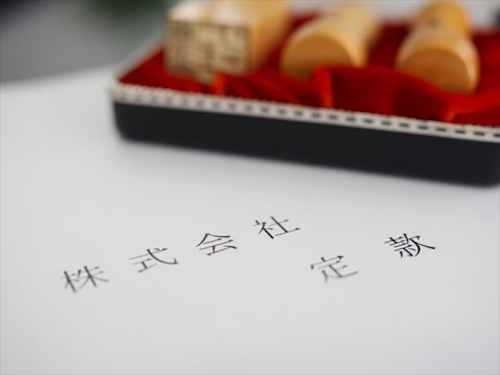 株式会社 定款